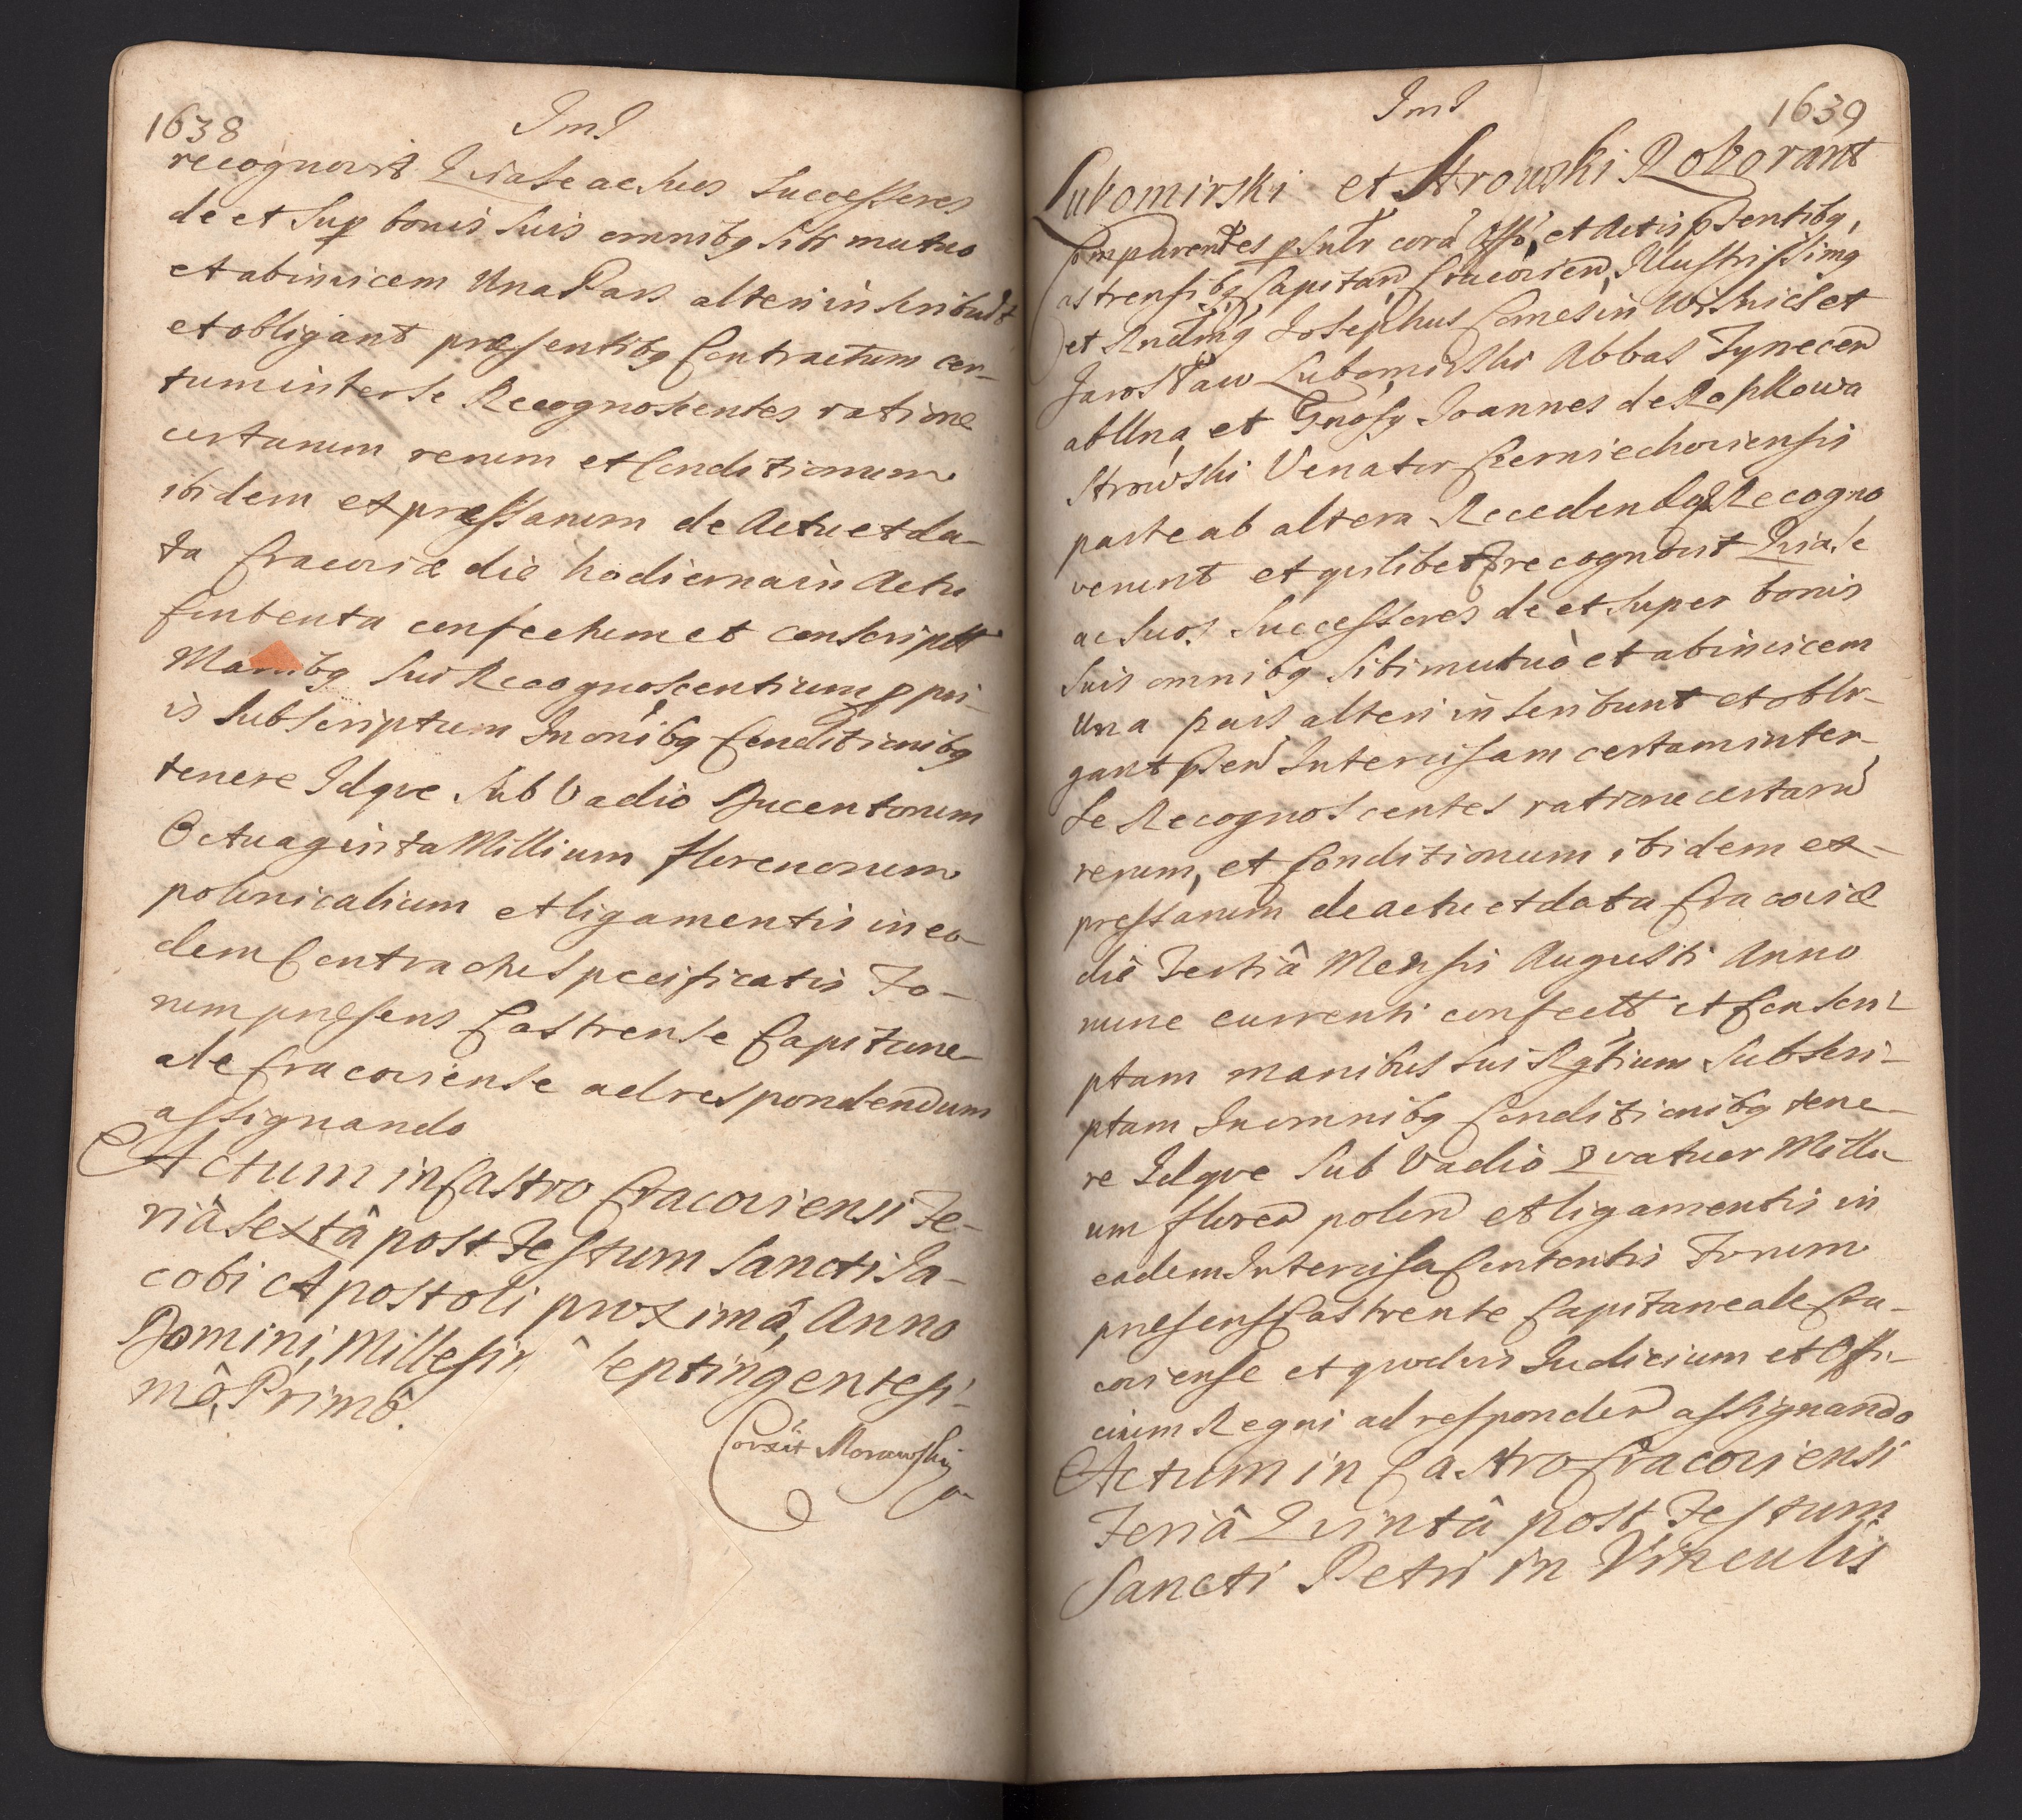 1638
recognovit Quia se ac suos Successores
de et sup bonis suis omnibq sibi mutuo
et ab invicem Una Pars alteri inscribunt
et obligant præsentibq Contractum cer-
tum inter se Recognoscentes ratione
certarum rerum et Conditionum
ibidem expressarum de Actu et da-
ta Cracoviæ die hodierna in Actu
contenta confectum et conscriptt
Manibq sui Recognoscentium ppri-
is subscriptum In oñibq Conditionibq
tenere Idqve sub Vadio Ducentorum
Octuaginta Millium florenorum
polonicalium et ligamentis in eo-
dem Contractu specificatis Fo-
rum præsens Castrense Capitane-
ale Cracoviense ad respondendum
assignando
Actum in Castro Cracoviensi Fe-
riâ sextâ post Festum Sancti Ja-
cobi Apostoli proximâ, Anno
Domini, Millesi septingentesi-
mô, Primô.
Corxit Morawski
1639
Lubomirski et Strowski Roborant
Comparentes psnlr corã Offõ, et Actis psentibq,
Castrensibq Capitan Cracovien, Illustrissimq
et Rndmq Josephus Comes in Wisnicz et
Jarosław Lubomirski Abbas Tynecen
ab Una, et Gnosq Joannes de Ropkowa
Strowski Venator Czerniechoviensis
parte ab altera Recedendo & Recogno
verunt et qvilibet recognovit Quia se
ac suos Successores de et super bonis
suis omnibq sibi mutuò et ab invicem
Una pars alteri inscribunt et obli-
gant psen Intercisam certam inter
se Recognoscentes ratione certarũ
rerum, et Conditionum ibidem ex-
pressarum de actu et data Cracoviæ
die Tertiâ Mensis Augusti Anno
nunc currenti confectt et Conscri
ptam manibus sui Rgtium subscri-
ptam In omnibq Conditionibq tene-
re Idqve sub Vadio Qvatuor Milli-
um floren polon et ligamentis in
eadem Intercisa Contentis Forum
præsens Castrense Capitaneale Cra-
coviense et qvodvis Judicium et Offi-
cium Regni ad responden assignando
Actum in Castro Cracoviensi
Feriâ Qvintâ post Festum
Sancti Petri in Vinculis